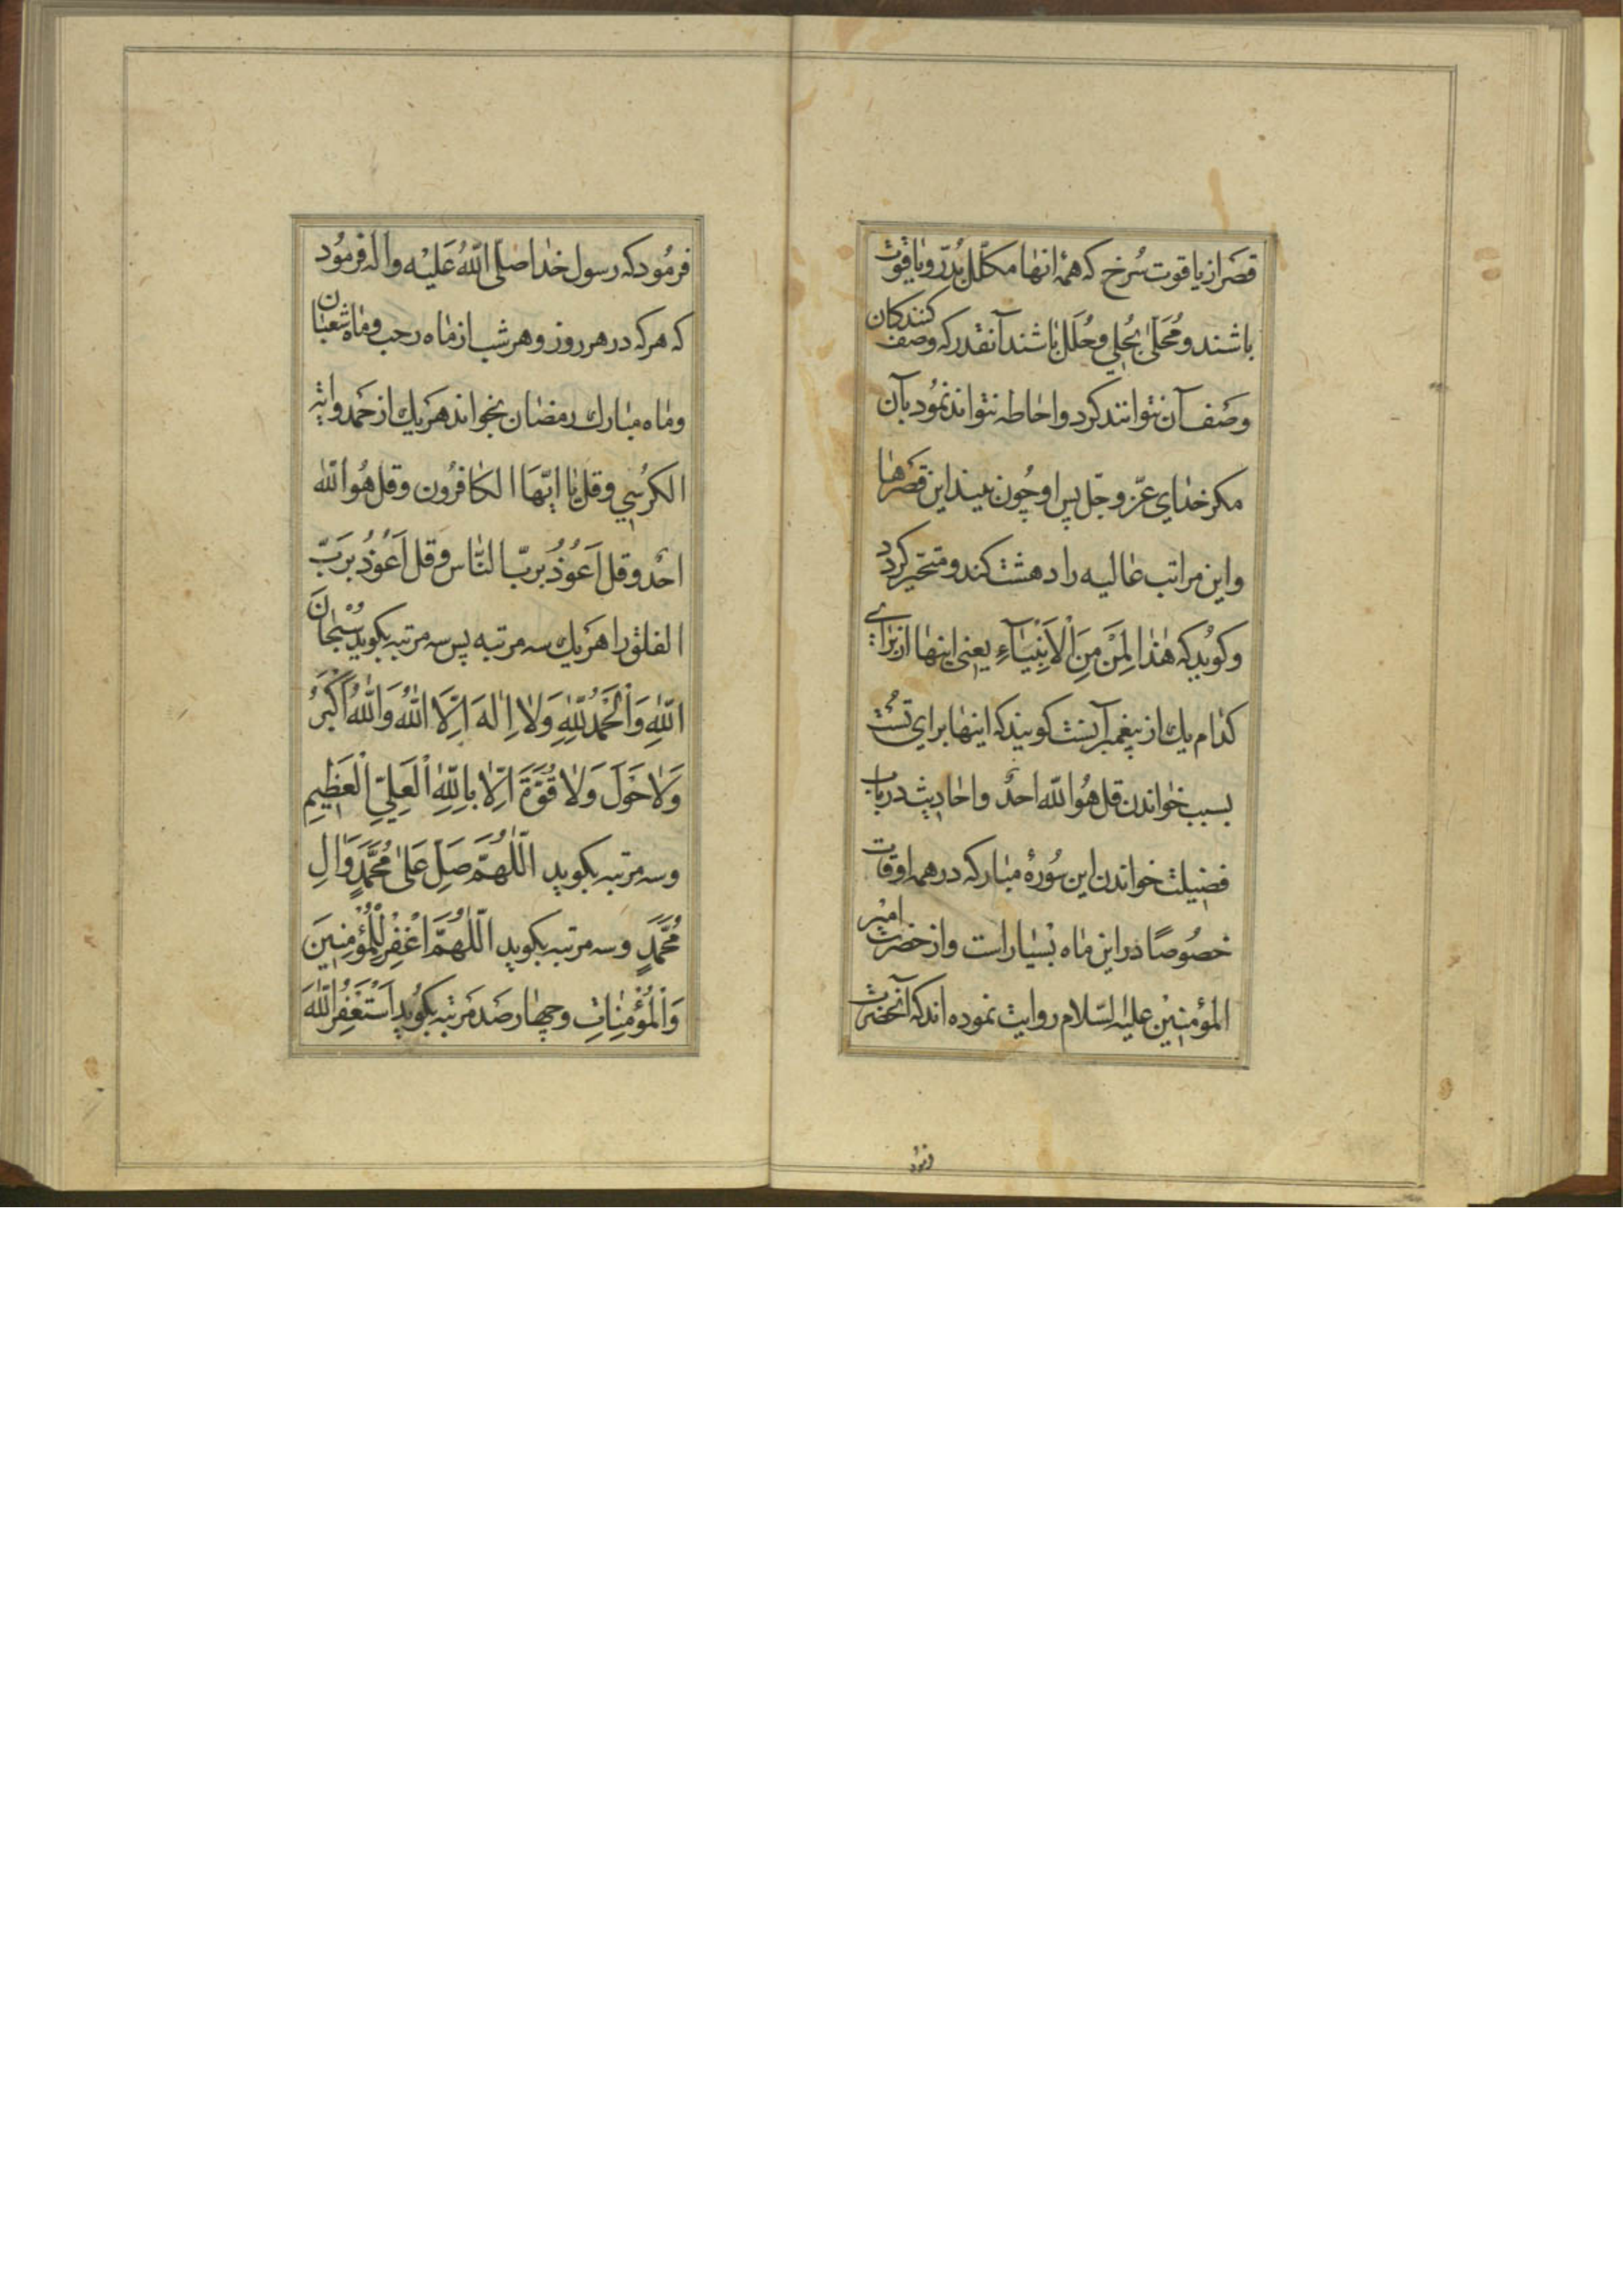 قصر از ياقوت سُرخ كه همۀ انها مكلّل بدُرّ و ياقوت
باشند و مُحَلّى بحُلي و حُلَل باشند آنقدر كه وصف كنندكان
وصَف آن نتوانند كرد و احاطه نتوانند نمُود بآن
مكر خداي عزّ و جّل پس او چُون بيند اين قصَرها
و اين مراتب عاليه را دهشت كند و متحّير كردد
و كوُيد كه هٰذا لِمَنْ مِنَ الْاَنْبِيٰآءِ يعني اينها از براي
كدام يك از پيغمبرآنست كويند كه اينها براي تُست
بسبب خواندن قل هُوا لله احدٌ و احاديث در باب
فضيلت خواندن اين سُورۀ مباركه در همه اوقات
خصُوصًا در اين ماه بسْيار است و از حضرت امير
المؤمنينْ عليه السّلام روايت نموده اند كه آنحضرت
فرمُود
فرمُود كه رسول خدا صَلّى اللّٰهُ عَليْه و اله فرمُود
كه هر كه در هر روز و هر شب از ماه رجب و ماه شعبان
و ماه مبارك رمضان بخواند هَر يك از حَمد و ايَة
الكرُسي و قل يا ايّهَا الكافرُون و قل هُوا للّٰه
احَد و قل اَعُوذُ بربّ النّاس و قل اَعُوذُ برَبّ
الفلق را هَر يك سه مرتبه پس سه مرتبه بكويد سُبْحٰانَ
اللّٰهِ وَالْحَمْدُ لِلّٰهِ وَلاٰ اِلٰهَ اِلَّا اللّٰهُ وَاللّٰهُ اَكْبَرُ
وَلاٰ حَوْلَ وَلاٰ قُوَّةَ اِلّاٰ بِاللّٰهِ الْعَلِيِّ الْعَظِيمِ
و سه مرتبه بكويد اَللّٰهُمَّ صَلِّ عَلىٰ مُحَمَّدٍ وَاٰلِ
مُحَمَّدٍ و سه مرتبه بكويد اَللّٰهُمَّ اغْفِرْ لِلْمُؤْمِنِينَ
وَالْمُؤْمِنٰاتِ و چهار صَد مَرتبه بكوُيد اَسْتَغْفِرُ اللّٰهَ